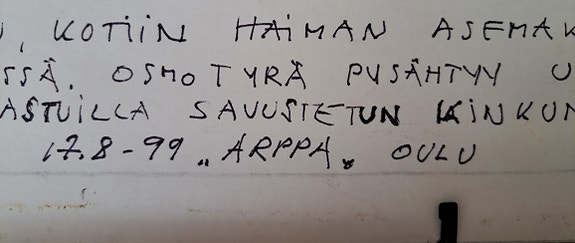 , KOTIIN HAIMAN ASEMAK
SSÄ. OSMO TYRÄ PYSÄHTYY U
ASTUILLA SAVUSTETUN KINKUN
17.8-99 „ÄRPPÄ„ OULU